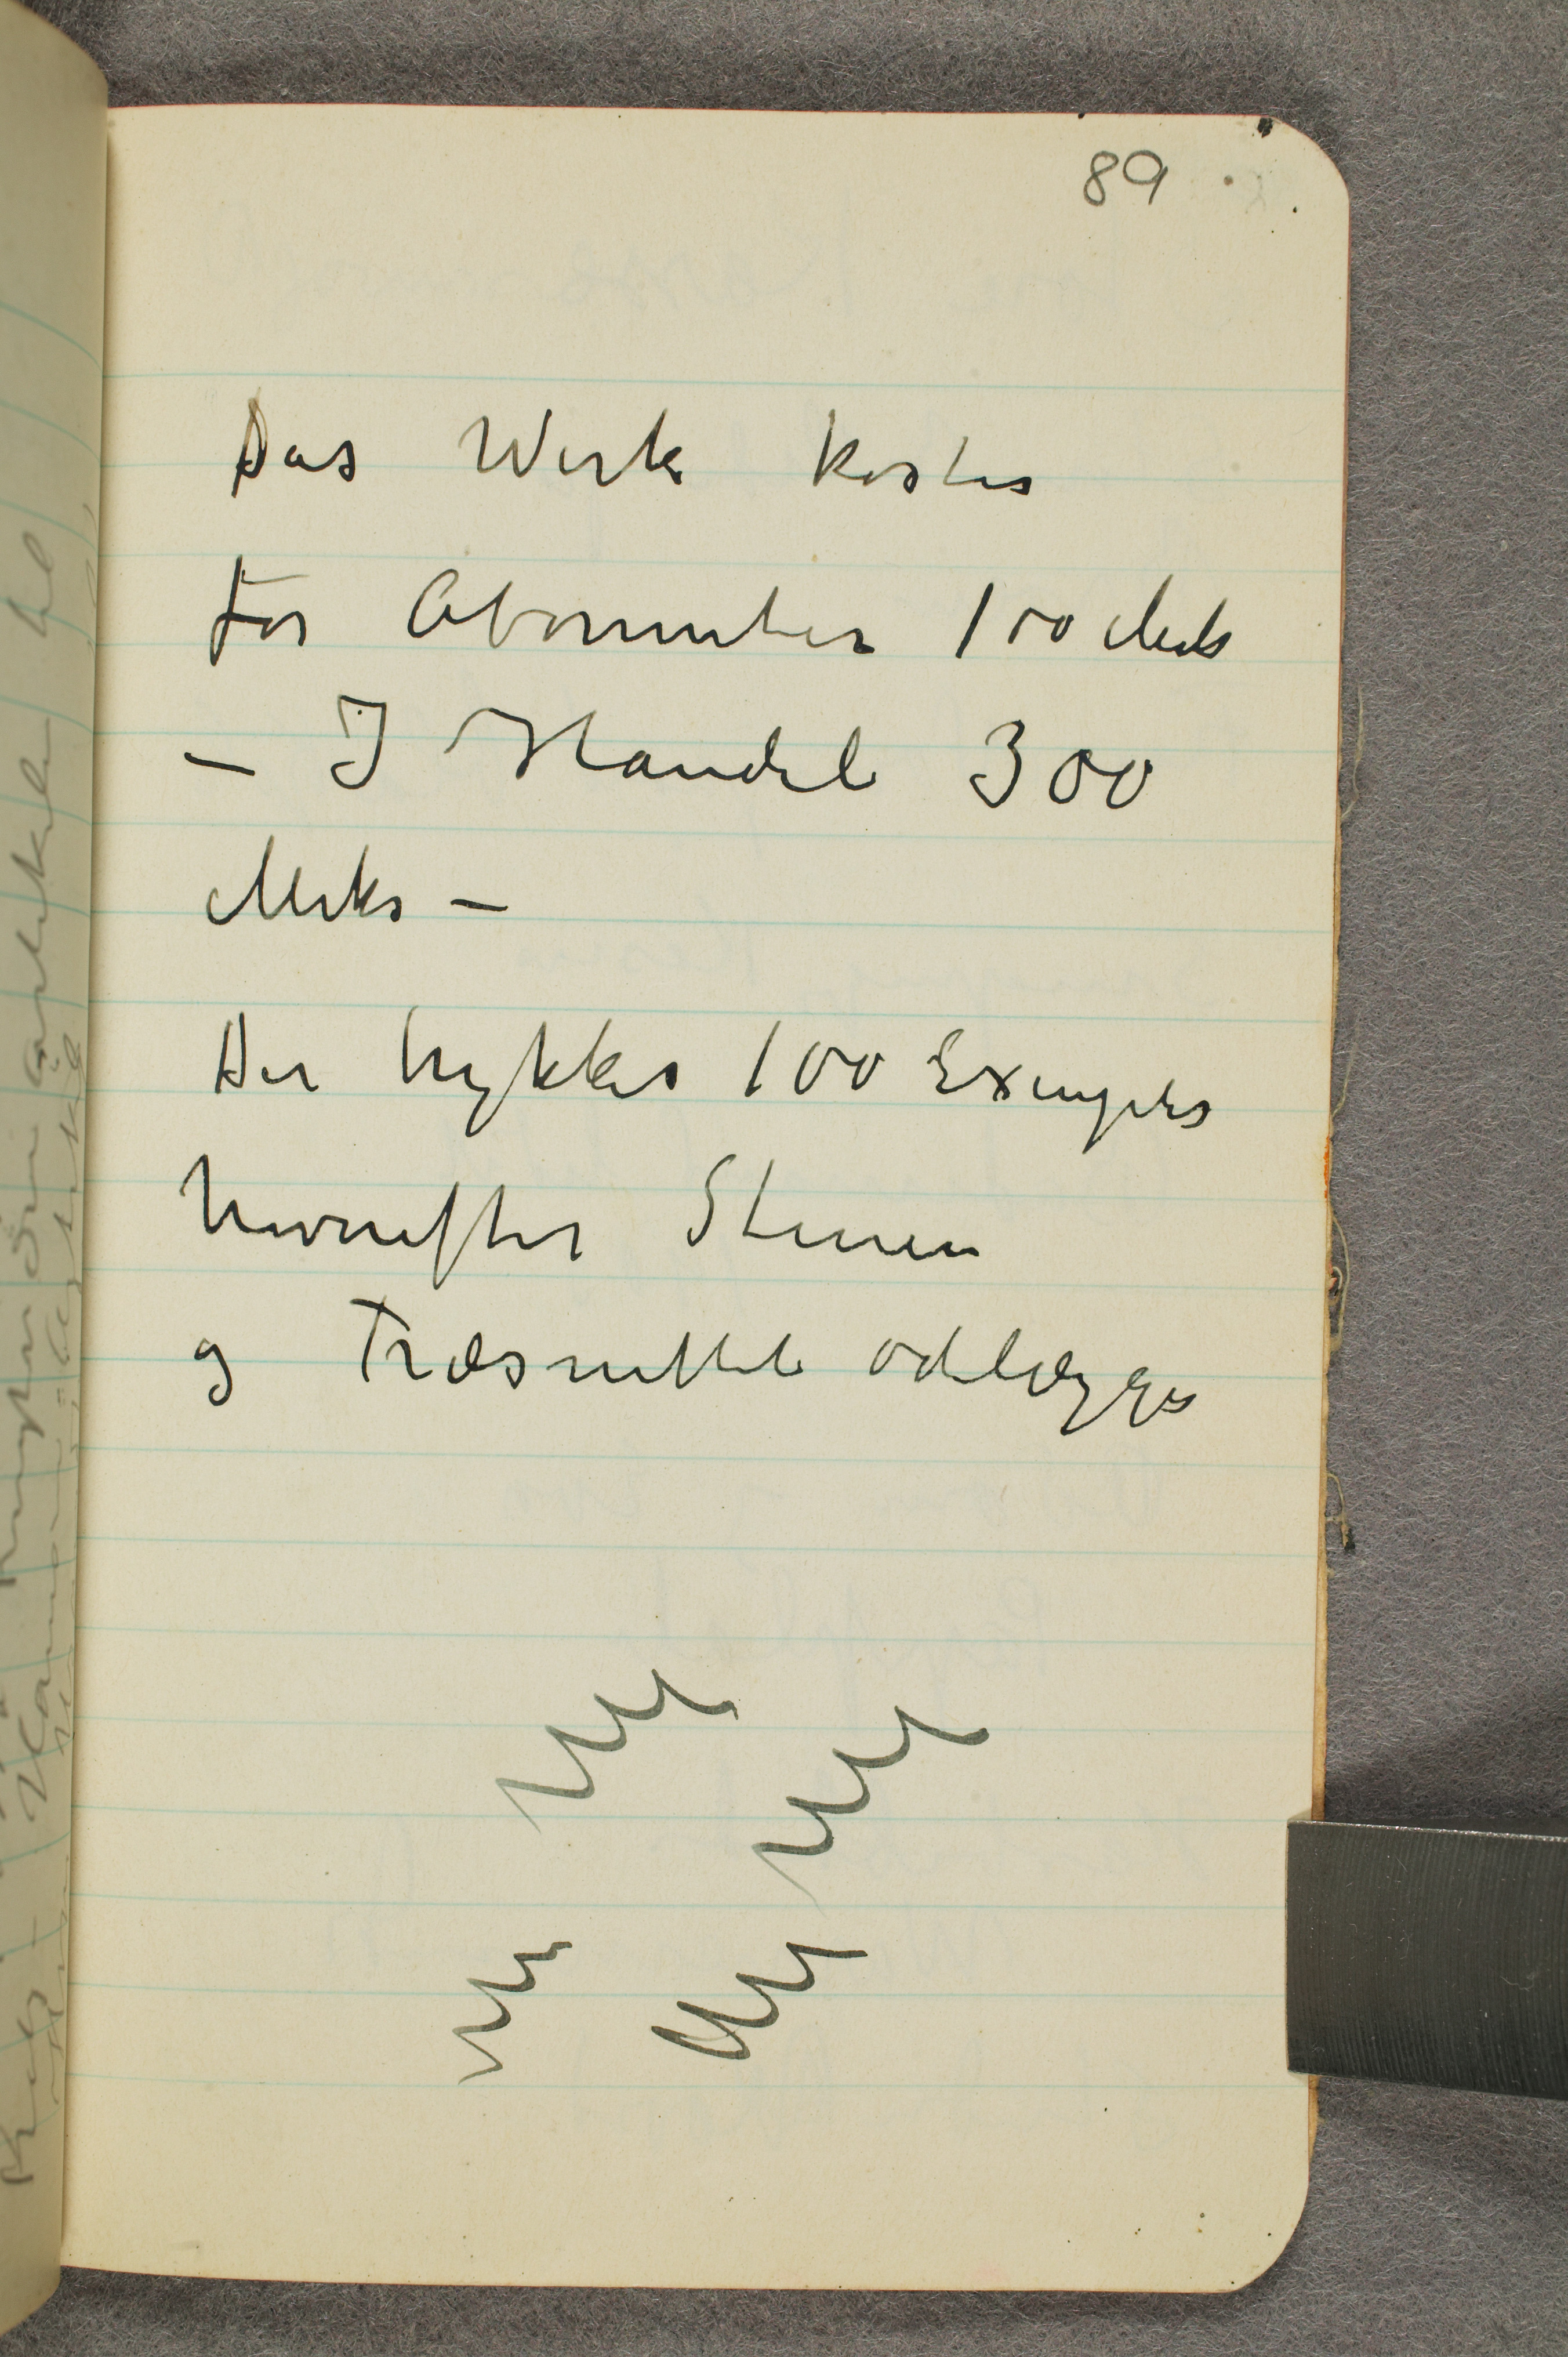 89
Das Werk koster
for Abonnenter 100 Mrk
– I Handel 300
Mrks –
Der trykkes 100 Exemplrs
hvorefter Stenen
og Træsnittet ødelægges